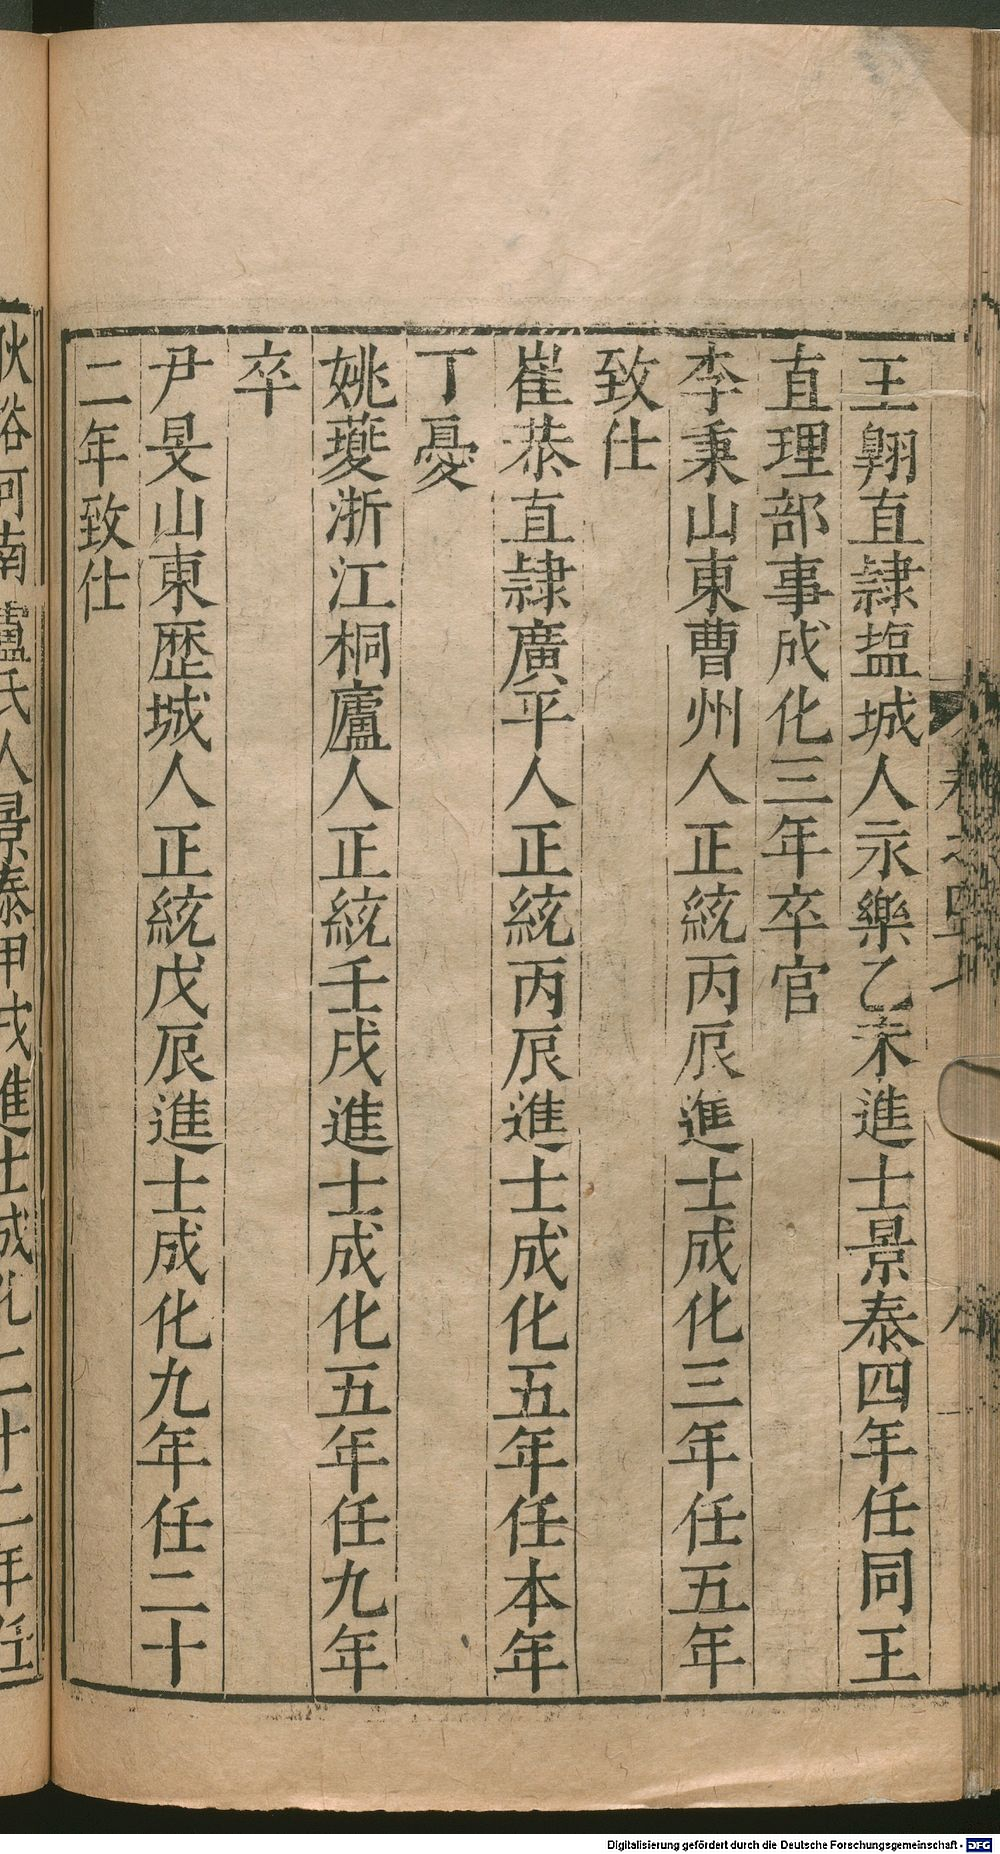 王翺直隷塩城人永樂乙未進士景泰四年任同王
直理部事成化三年卒官
李秉山東曹州人正統丙辰進士成化三年任五年
致仕
崔恭直隷廣平人正統丙辰進士成化五年任本年
丁憂
姚夔浙江桐廬人正統壬戌進士成化五年任九年
卒
尹旻山東歴城人正統戊辰進士成化九年任二十
二年致仕
耿裕河南盧氏人景泰甲戌進士成化二十二年任
Digitalisierung gefördert durch die Deutsche Forschungsgemeinschaft - DFG